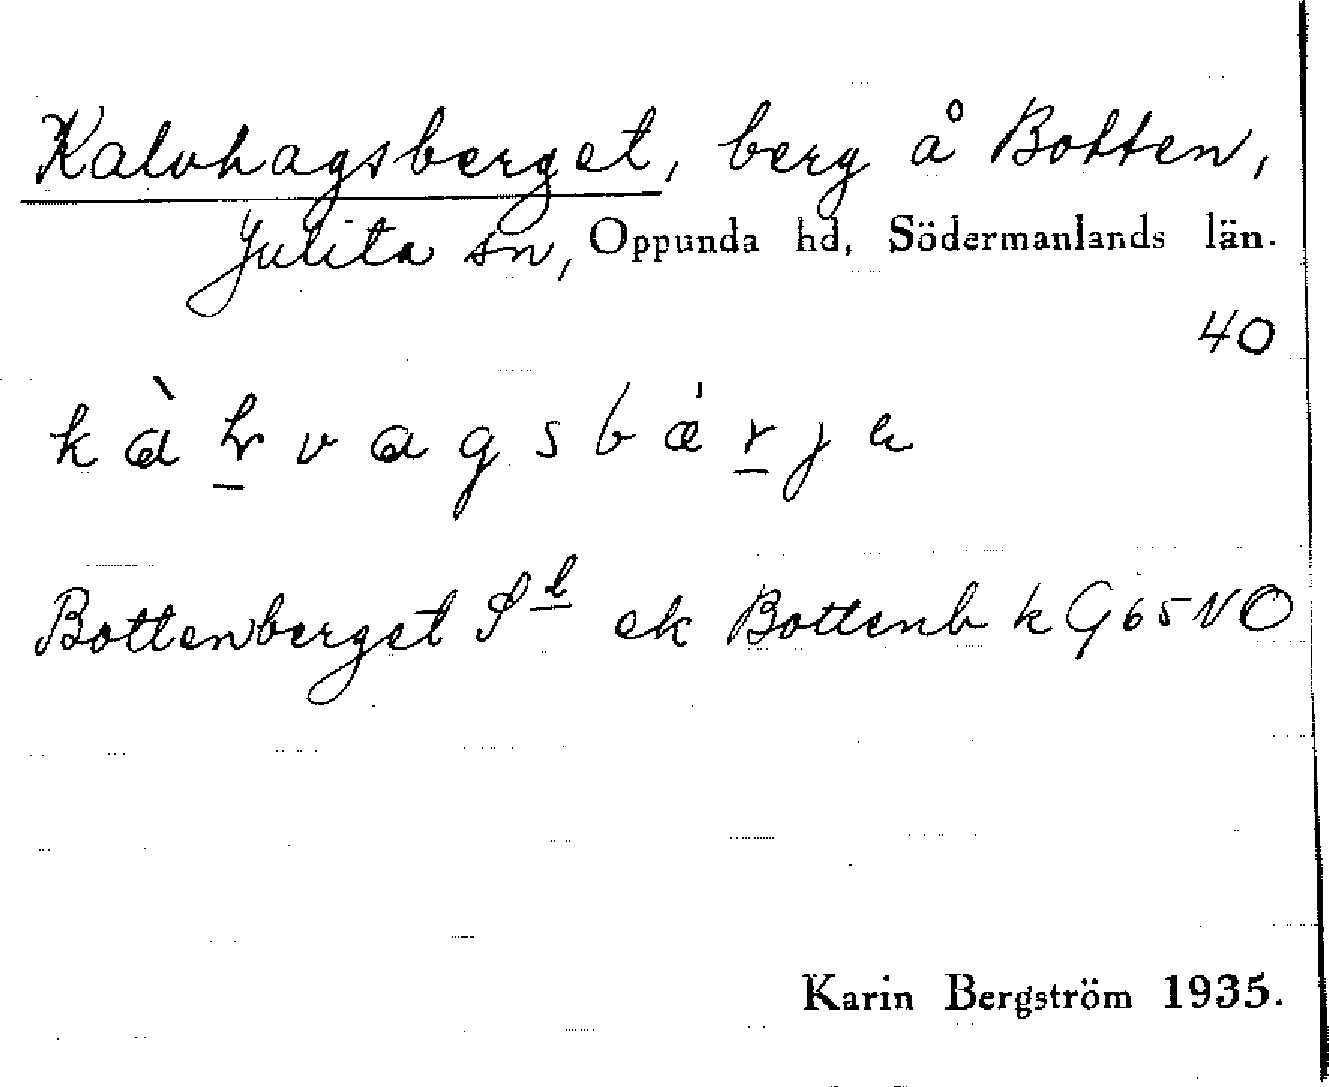 Kalvhagsberget, berg å Botten,
Julita sn, Oppunda hd, Södermanlands län.
40
Bottenberget ek Bottenb k G65NO
Karin Bergström 1935.